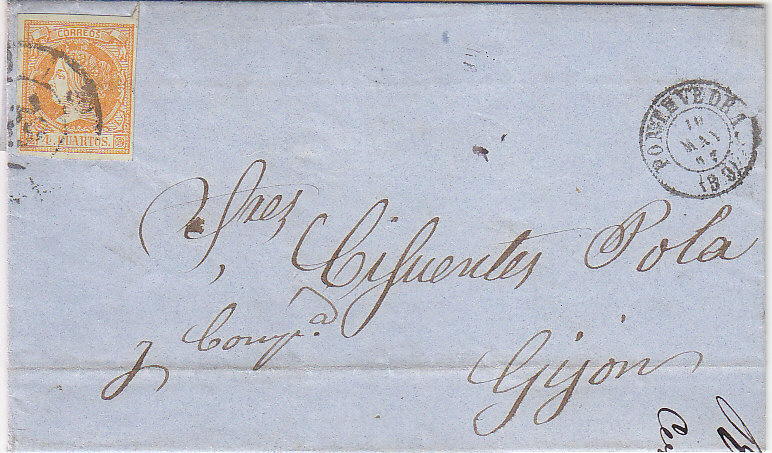 CORREOS
4 CUARTOS.
PONTEVEDRA
10
MAY
Sres
Cifuentes Pola
y Compª
Gijón